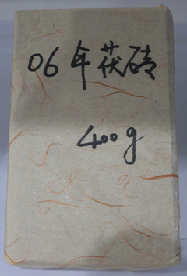 06年茯砖
400g